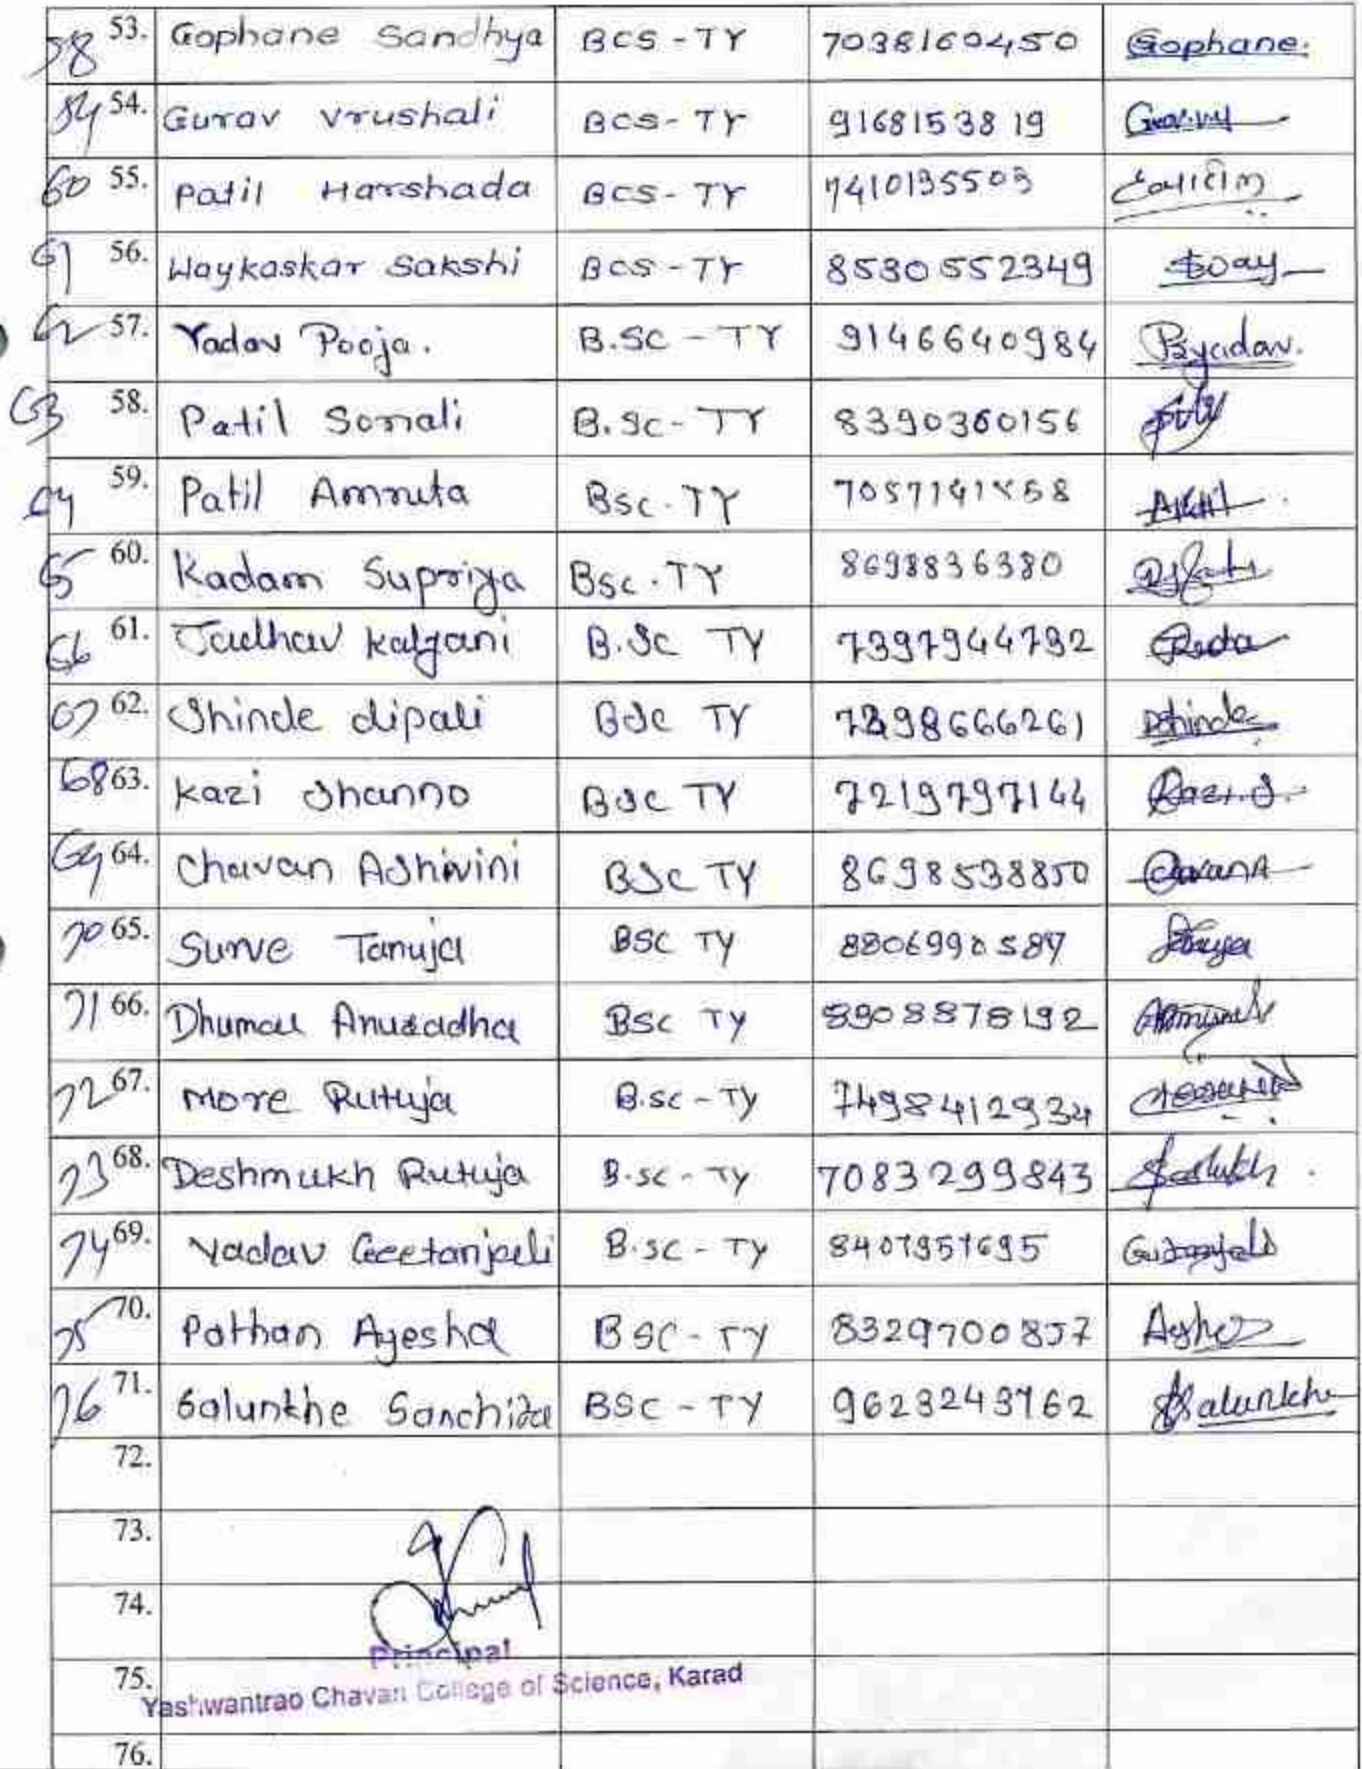 58 53. Gophane Sandhya BCS - TY 7038160450 Gophane.
54. Gurav Vrushali BCS - TY 9168153819
60 55. Patil Harshada BCS - TY 7410135503
61 56. Waykaskar Sakshi BCS - TY 8530552349
62 57. Yadav Pooja. B.SC - TY 9146640984 Psyadav.
63 58. Patil Sonali B.Sc - TY 8390360156
64 59. Patil Amruta Bsc. TY
65 60. Kadam Supriya Bsc. TY 8698836380
66 61. Jadhav Kalyani B.Sc TY 7397944792
67 62. Shinde dipali BSc TY DShinde
68 63. Kazi Shanno BSc TY 7219797144 Kazi.S.
69 64. Chavan Ashivini BSc TY 8698538850 ChavanA
70 65. Surve Tanuja BSC TY 8806990587
71 66. Dhumal Anuradha BSC TY 8908878192
72 67. More Rutuja B.sc - TY 7498412934
73 68. Deshmukh Rutuja B.sc - TY 7083299843
74 69. Yadav Geetanjali B.sc - TY 8407957695
75 70. Pathan Ayesha BSC - TY 8329700857
76 71. Salunkhe Sanchita BSC - TY 9623243762 Salunkhe
72.
73.
74.
Principal
75.
Yashwantrao Chavan College of Science, Karad
76.